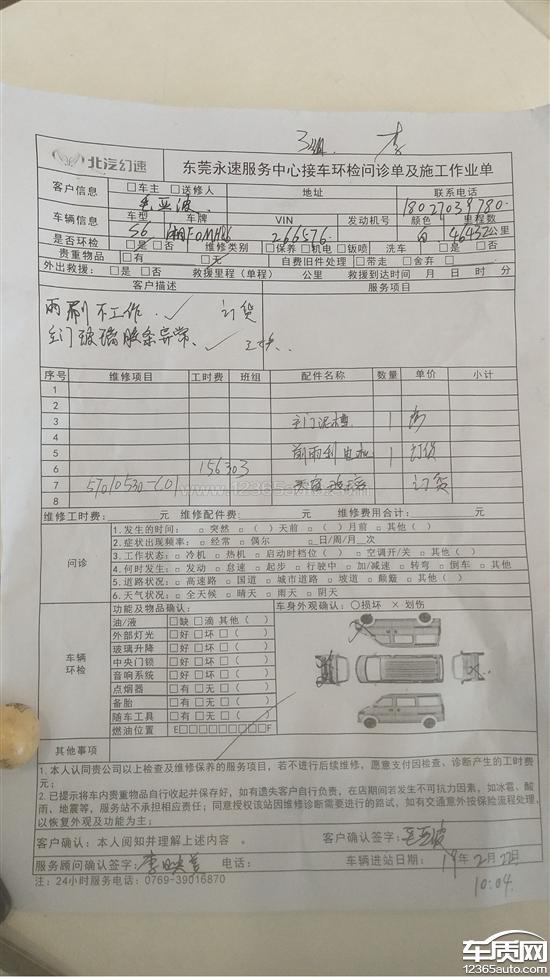 北汽幻速 东莞永速服务中心接车环检问诊单及施工作业单
客户信息 □车主 □送修人 地址 联系电话
18027039780
车辆信息 车型 车牌 VIN 发动机号 颜色 里程数
S6 266576 白 46432公里
是否环检 □是 □否 维修类别 □保养 □机电 □钣喷 洗车 □是 □否
贵重物品 □有 □无 自费旧件处理 □带走 □舍弃 □
外出救援: □是 □否 救援里程(单程) 公里 救援到达时间 月 日 时 分
客户描述 服务项目
雨刷不工作. ✓ 订货
左门玻璃胶条异常. ✓
序号 维修项目 工时费 班组 配件名称 数量 单价 小计
1
2
3 1
4
5 前雨刮电机 1 订货
6 156303
7 订货
8
维修工时费:______元 维修配件费:______元 维修费用合计:______元
问诊
1.发生的时间: □突然 □( )天前 □( )月前 □其他( )
2.症状出现频率: □经常 □偶尔 □__日/周/月__次
3.工作状态: □冷机 □热机 □启动时档位( ) □空调开/关 □其他( )
4.何时发生: □发动 □怠速 □起步 □行驶中 □加/减速 □转弯 □倒车 □其他
5.道路状况: □高速路 □国道 □城市道路 □坡道 □颠簸 □其他( )
6.天气状况: □全天候 □晴天 □雨天 □阴天
车辆环检
功能及物品确认: 车身外观确认: ○损坏 ×划伤
油/液 □缺 □滴 其他( )
外部灯光 □好 □坏 □( )
玻璃升降 □好 □坏 □( )
中央门锁 □好 □坏 □( )
音响系统 □好 □坏 □( )
点烟器 □有 □无 □( )
备胎 □有 □无 □( )
随车工具 □有 □无 □( )
燃油位置 E□□□□□□□□□F
其他事项
1.本人认同贵公司以上检查及维修保养的服务项目,若不进行后续维修,愿意支付因检查、诊断产生的工时费
元;
2.已提示将车内贵重物品自行收起并保存好,如有遗失客户自行负责,在店期间若发生不可抗力因素,如冰雹、酸
雨、地震等,服务站不承担相应责任;同意授权该站因维修诊断需要进行的路试,如有交通意外按保险流程处理,
以恢复外观及功能为主;
客户确认:本人阅知并理解上述内容。 客户确认签字:
服务顾问确认签字: 电话: 车辆进站日期: 19年2月22日
注:24小时服务电话:0769-39016870 10:04
www.12365auto.com
车质网
12365auto.com